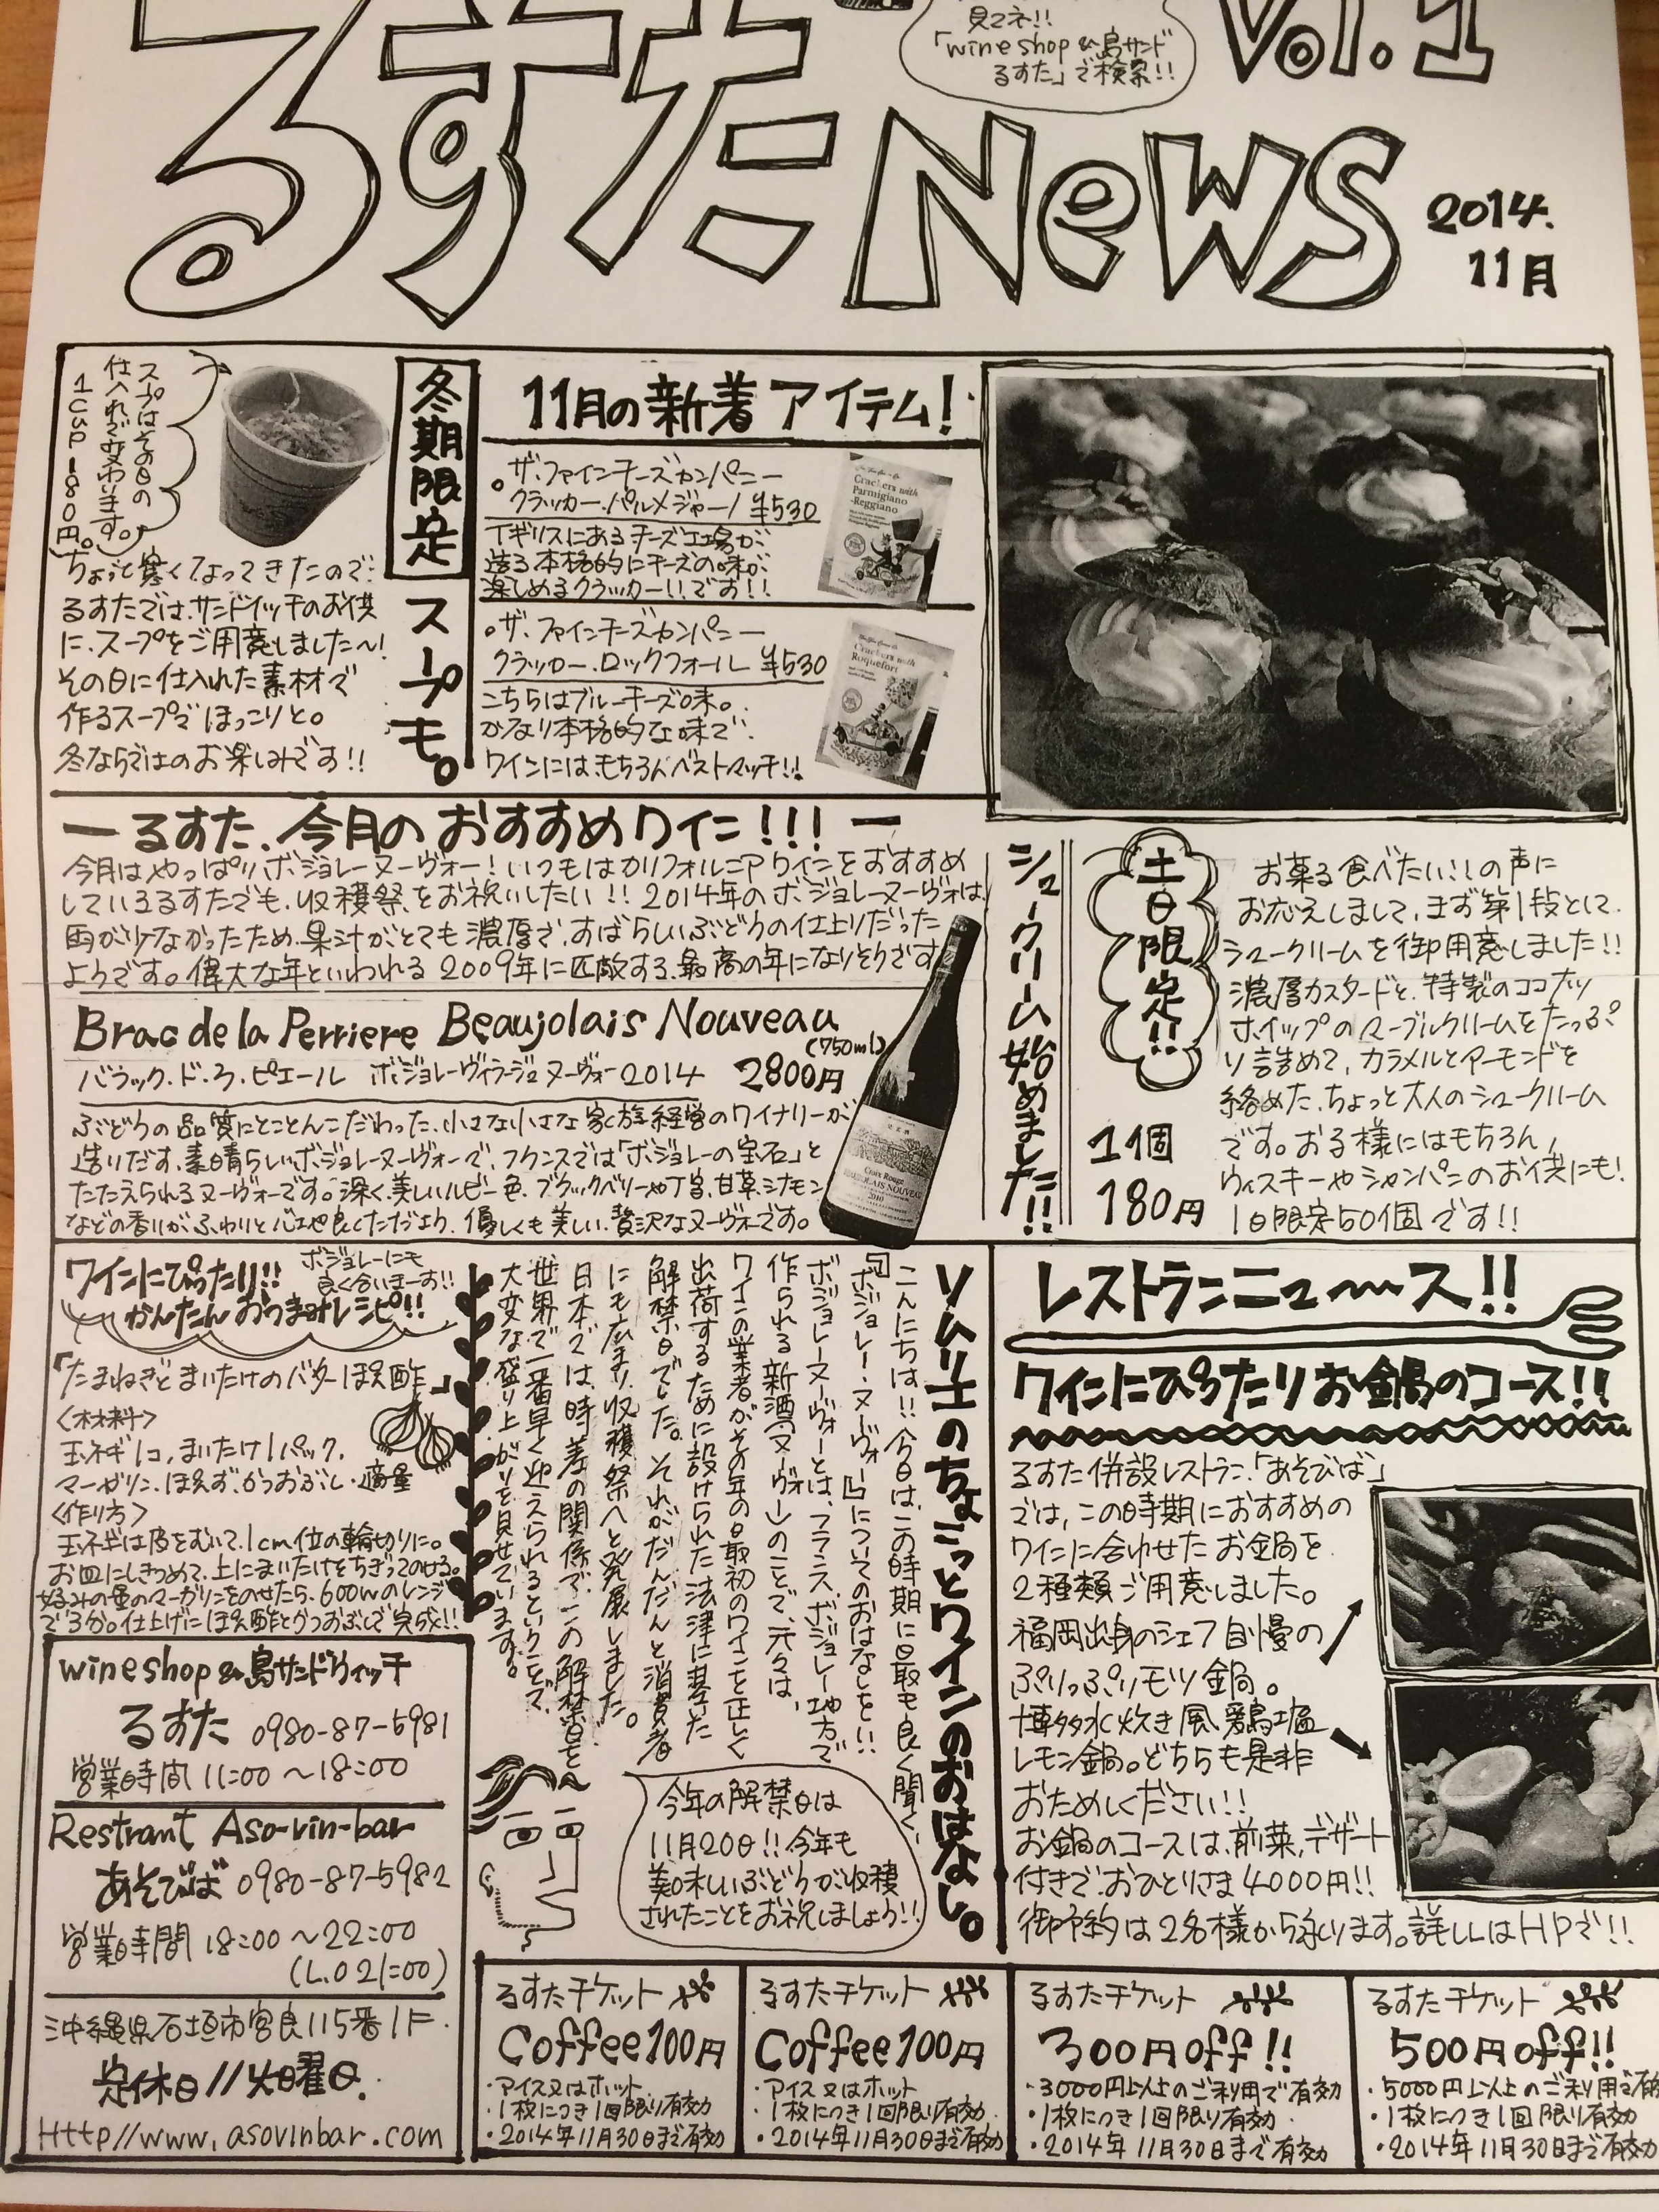 見てネ!!
「wine shop & 島サンド
るすた」で検索!!
Vol.1
るすた News
2014.
11月
スープはその日の
仕入れで変わります。
1cup 180円。
冬期限定
スープも。
ちょっと寒くなってきたので
るすたでは、サンドイッチのお供
に、スープをご用意しました〜!
その日に仕入れた素材で
作るスープで ほっこりと。
冬ならではのお楽しみです!!
11月の新着アイテム!
・ザ・ファインチーズカンパニー
クラッカー・パルメジャーノ ¥530
イギリスにあるチーズ工場が
造る本格的にチーズの味が
楽しめるクラッカー!!です!!
Crackers with
Parmigiano
-Reggiano
・ザ・ファインチーズカンパニー
クラッカー・ロックフォール ¥530
こちらはブルーチーズ味。
かなり本格的な味で
ワインには、もちろんベストマッチ!!
Crackers with
Roquefort
ーるすた、今月のおすすめワイン!!!ー
今月はやっぱり、ボジョレーヌーヴォー!いつもはカリフォルニアワインをおすすめ
しているるすたでも、収穫祭をお祝いしたい!!2014年のボジョレーヌーヴォは、
雨が少なかったため、果汁がとても濃厚で、すばらしいぶどうの仕上りだった
ようです。偉大な年といわれる2009年に匹敵する、最高の年になりそうです
Brac de la Perriere Beaujolais Nouveau
(750ml)
バラック・ド・ラ・ピエール ボジョレーヴィラージュ ヌーヴォー2014 2800円
ぶどうの品質にとことんこだわった、小さな小さな家族経営のワイナリーが
造りだす、素晴らしいボジョレーヌーヴォーで、フランスでは「ボジョレーの宝石」と
たたえられるヌーヴォーです。深く美しいルビー色、ブラックベリーや丁旨、甘草、シナモン
などの香りが、ふわりとバエや良くただより、優しくも美しい、贅沢なヌーヴォーです。
Croix Rouge
BEAUJOLAIS NOUVEAU
2010
シュークリーム始めました!!
土日限定!!
1個
180円
お菓子食べたい!!の声に
お応えしまして、まず第1段として、
シュークリームを御用意しました!!
濃厚カスタードと、特製のココナッツ
ホイップのマーブルクリームをたっぷ
り詰めて、カラメルとアーモンドを
絡めた、ちょっと大人のシュークリーム
です。お子様にはもちろん、
ウィスキーやシャンパンのお供にも!
1日限定50個です!!
ワインにぴったり!! ボジョレーにも
良く合いまーす!!
かんたん おつまみレシピ!!
「たまねぎとまいたけのバターぽん酢」
<材料>
玉ネギ1コ、まいたけ1パック、
マーガリン、ぽんず、かつおぶし・適量
<作り方>
玉ネギは皮をむいて、1cm位の輪切りに。
お皿にしきつめて、上にまいたけをちぎってのせる。
好みの量のマーガリンをのせたら、600wのレンジ
で3分。仕上げにぽん酢とかつおぶしで完成!!
ソムリエのちょこっとワインのおはなし。
こんにちは!!今日は、この時期に最も良く聞く、
『ボジョレー・ヌーヴォー』についてのおはなしを!!
ボジョレーヌーヴォーとは、フランス、ボジョレー地方で
作られる新酒(ヌーヴォー)のことで、元々は、
ワインの業者がその年の最初のワインを正しく
出荷するために設けられた法律に基いた
解禁日でした。それがだんだんと消費者
にも広まり、収穫祭へと発展しました。
日本では、時差の関係で、この解禁日を
世界で一番早く迎えられるということで、
大変な盛り上がりを見せています。
今年の解禁日は
11月20日!!今年も
美味しいぶどうが収穫
されたことをお祝しましょう!!
レストランニュ〜ス!!
ワインにぴったりお鍋のコース!!
るすた併設レストラン「あそびば」
では、この時期におすすめの
ワインに合わせたお鍋を
2種類ご用意しました。
福岡出身のシェフ自慢の
ぷりっぷりモツ鍋。
博多水炊き風 鶏塩
レモン鍋。どちらも是非
おためしください!!
お鍋のコースは、前菜、デザート
付きで、おひとりさま4000円!!
御予約は2名様から承ります。詳しくはHPで!!
wine shop & 島サンドウィッチ
るすた 0980-87-5981
営業時間 11:00〜18:00
Restrant Aso-vin-bar
あそびば 0980-87-5982
営業時間 18:00〜22:00
(L.O 21:00)
沖縄県石垣市宮良115番1F
定休日//火曜日.
Http//www.asovinbar.com
るすたチケット
Coffee100円
・アイス又はホット
・1枚につき1回限り有効
・2014年11月30日まで有効
るすたチケット
Coffee100円
・アイス又はホット
・1枚につき1回限り有効
・2014年11月30日まで有効
るすたチケット
300円off!!
・3000円以上のご利用で有効
・1枚につき1回限り有効
・2014年11月30日まで有効
るすたチケット
500円off!!
・5000円以上のご利用で有効
・1枚につき1回限り有効
・2014年11月30日まで有効